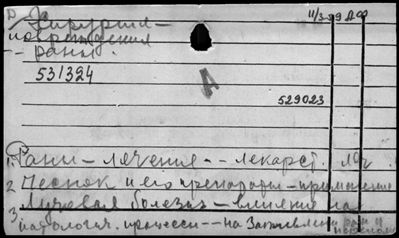 Хирургия –
повреждения
-- раны.
531324
А
529023
1. Раны – лечение -- лекарст.
2 Чеснок и его препараты – применение
3. Лучевая болезнь – влияние на
патологич. процессы -- на заживление ран и